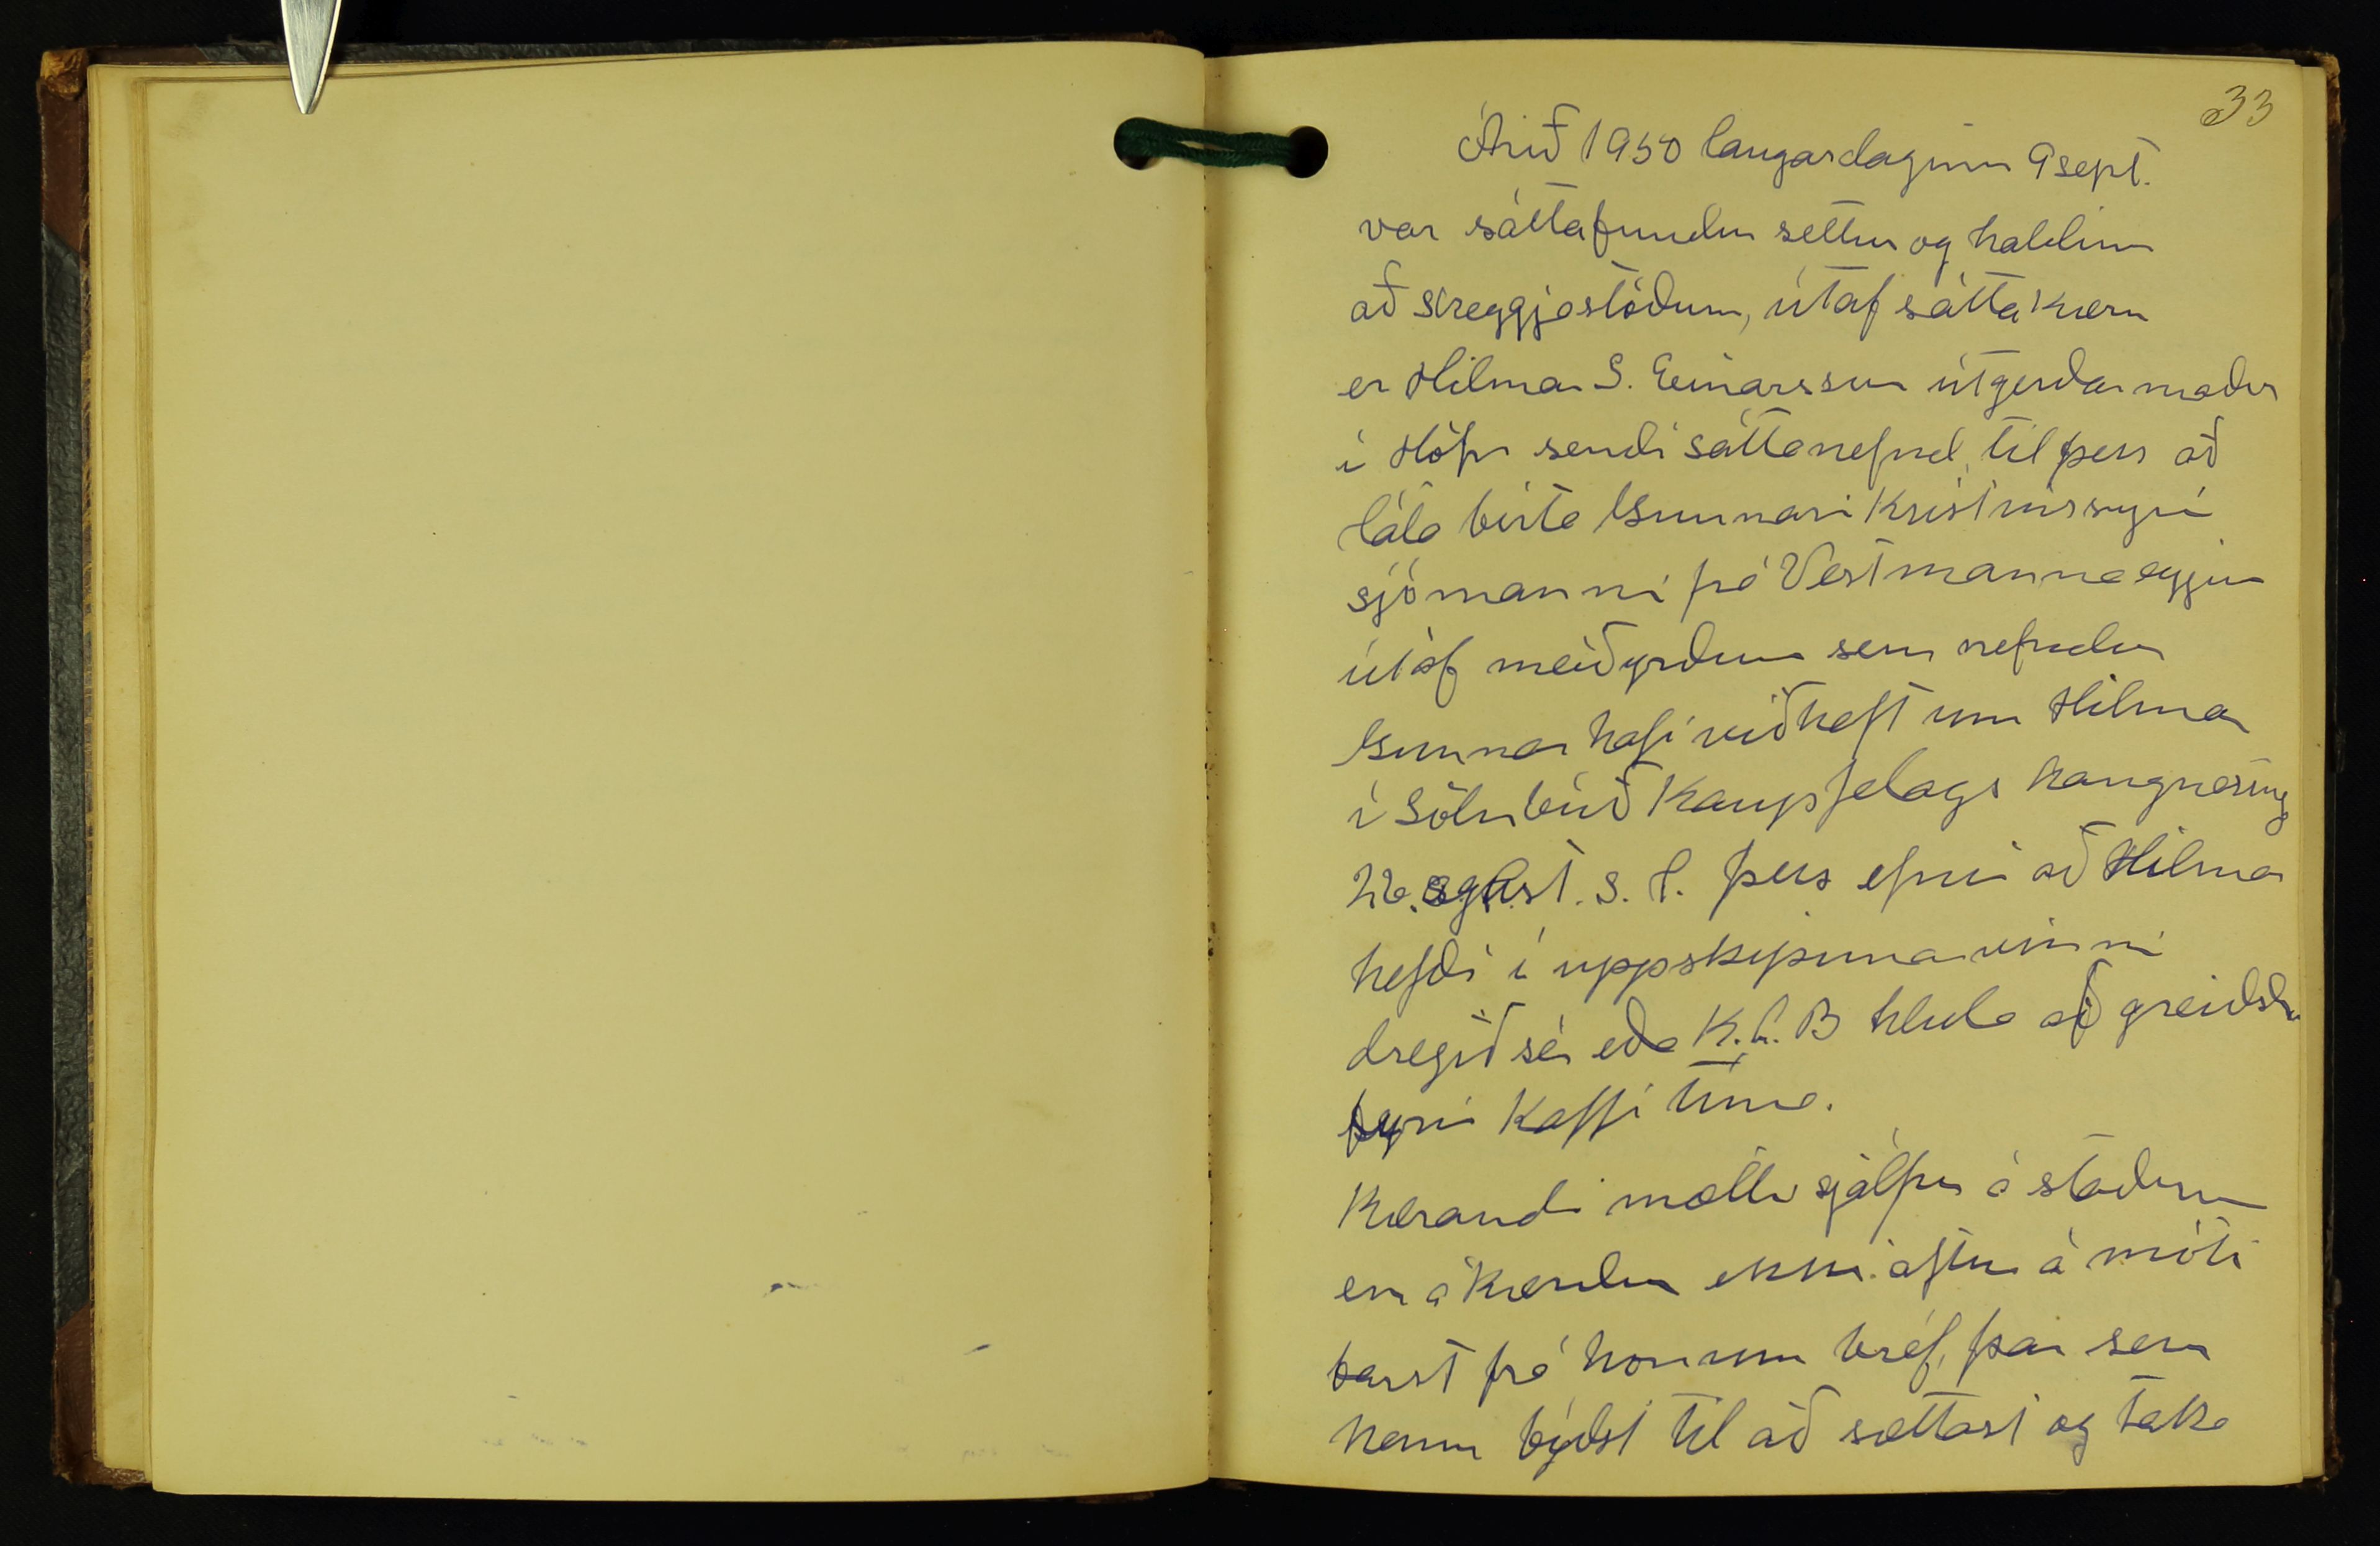 33
Árið 1950 laugardaginn 9 sept.
var sáttafundur settur og haldinn
að Skeggjastöðum, útaf sáttakæru
er Hilmar S. Einarsson útgerðarmaður
í Höfn sendi sáttanefnd, til þess að
láta birta Gunnari Kristinssyni
sjómanni frá Vestmannaeyjum
útaf meiðyrðum sem nefndur
Gunnar hafi viðhaft um Hilmar
í Sölubúð Kaupfelags Langnesing
26. agúst. s. l. þess efnis að Hilmar
hefði í uppskipunarvinni
dregið sér eða K.L.B hluta af greiðslu
fyrir Kaffi tíma.
Kærandi mætti sjálfur á staðnum
en ákærdur ekki. aftur á móti
barst frá honum bréf, þar sem
hann býðst til að sættast og taka